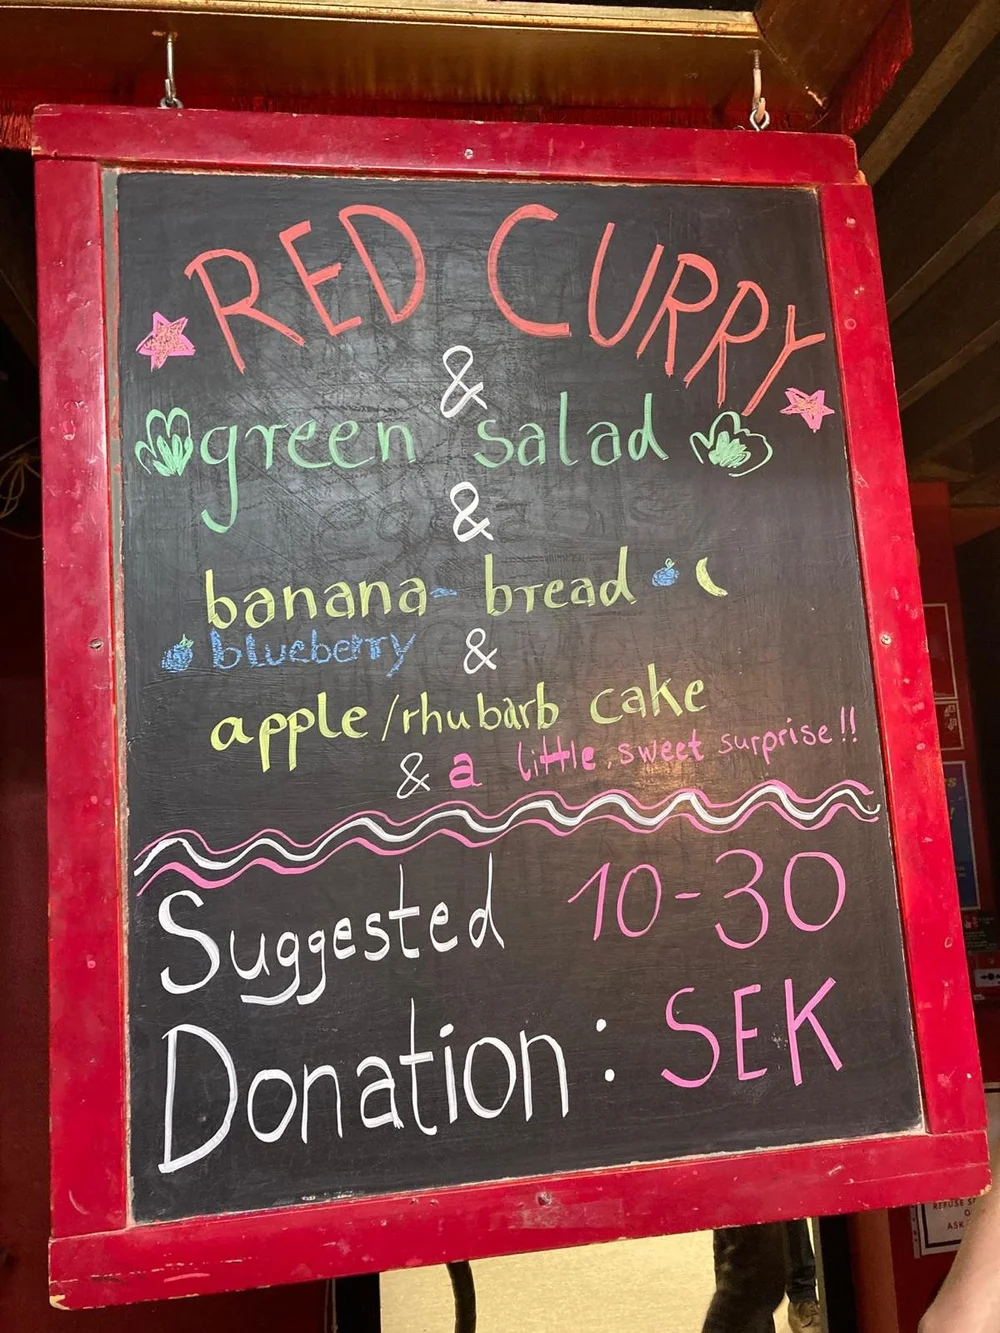 RED CURRY
&
green salad
&
banana- bread
blueberry &
apple/rhubarb cake
& a little, sweet surprise!!
Suggested 10-30
Donation: SEK
REFUSE
ASK